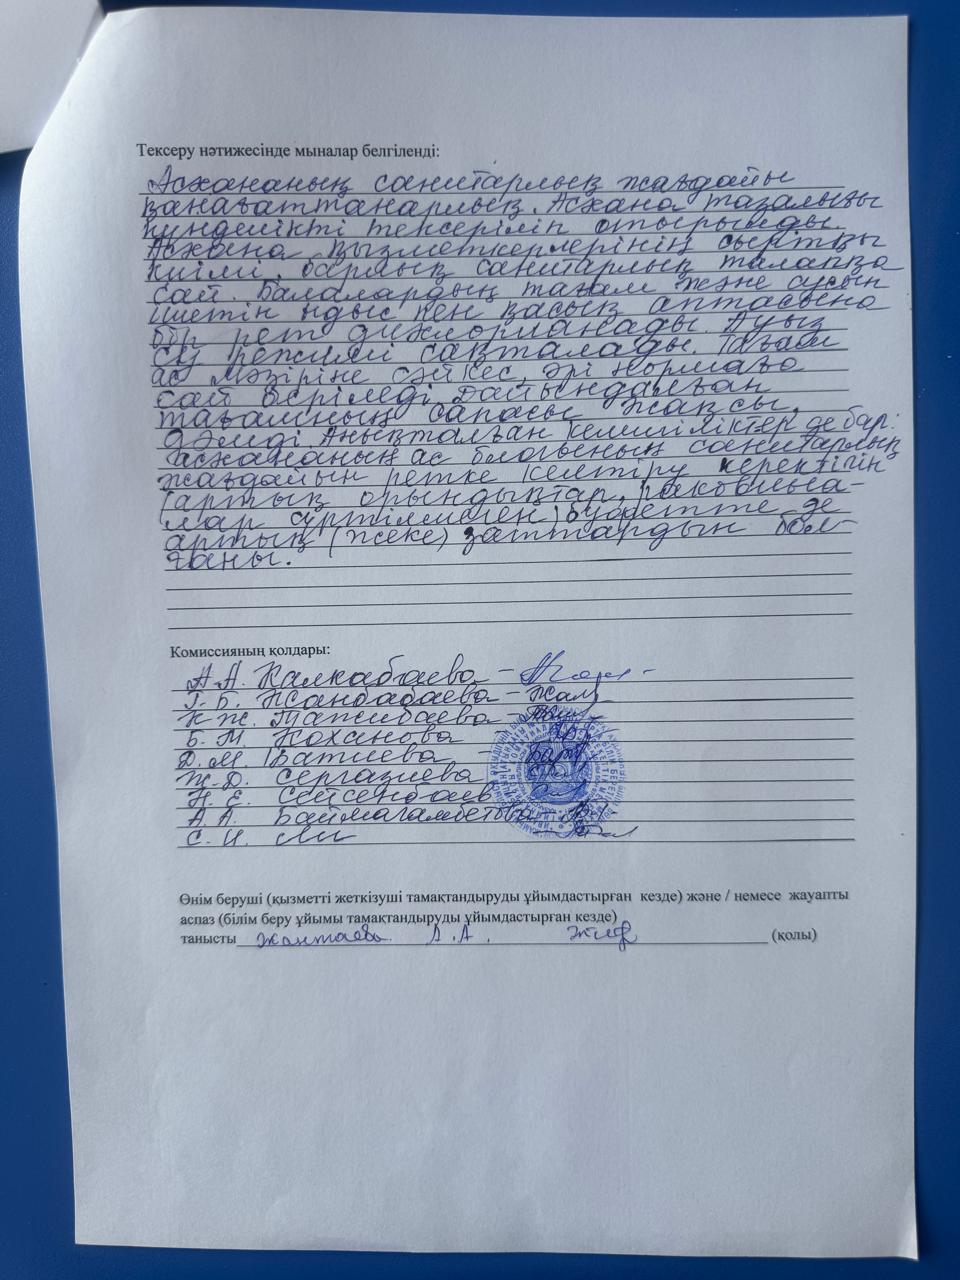 Тексеру нәтижесінде мыналар белгіленді:
Асхананың санитарлық жағдайы
қанағаттанарлық. Асхана тазалығы
күнделікті тексеріліп отырылды.
Асхана қызметкерлерінің сыртқы
киімі, барлық санитарлық талапқа
сай. Балалардың тағам және сусын
ішетін ыдыс пен қасық аптасына
бір рет дихлорланады. Ауыз
су режимі сақталады. Тағам
ас мәзіріне сәйкес, әрі нормаға
сай беріледі. Дайындалған
тағамның сапасы жақсы,
дәмді. Анықталған кемшіліктер де бар:
асхананың ас блогының санитарлық
жағдайын ретке келтіру керектігін
(артық орындықтар, раковина-
лар сүртілмеген) буфетте де
артық (жеке) заттардың бол-
ғаны.
Комиссияның қолдары:
А.А. Калкабаева -
Г.Б. Жанбабаева -
К.Ж. Тажибаева -
Б.М. Коханова
Д.М. Батиева -
Ж.Д. Сергазиева
Н.Е. Сейсенбаев
А.А. Баймагамбетова
С.И. Ли
Өнім беруші (қызметті жеткізуші тамақтандыруды ұйымдастырған кезде) және / немесе жауапты
аспаз (білім беру ұйымы тамақтандыруды ұйымдастырған кезде)
танысты Жантаева А.А. (қолы)